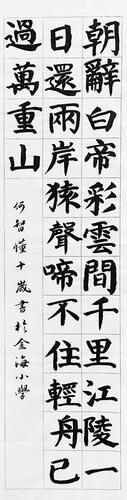 朝辭白帝彩雲間千里江陵一
日還兩岸猿聲啼不住輕舟已
過萬重山
何智懂十歲書於金海小學